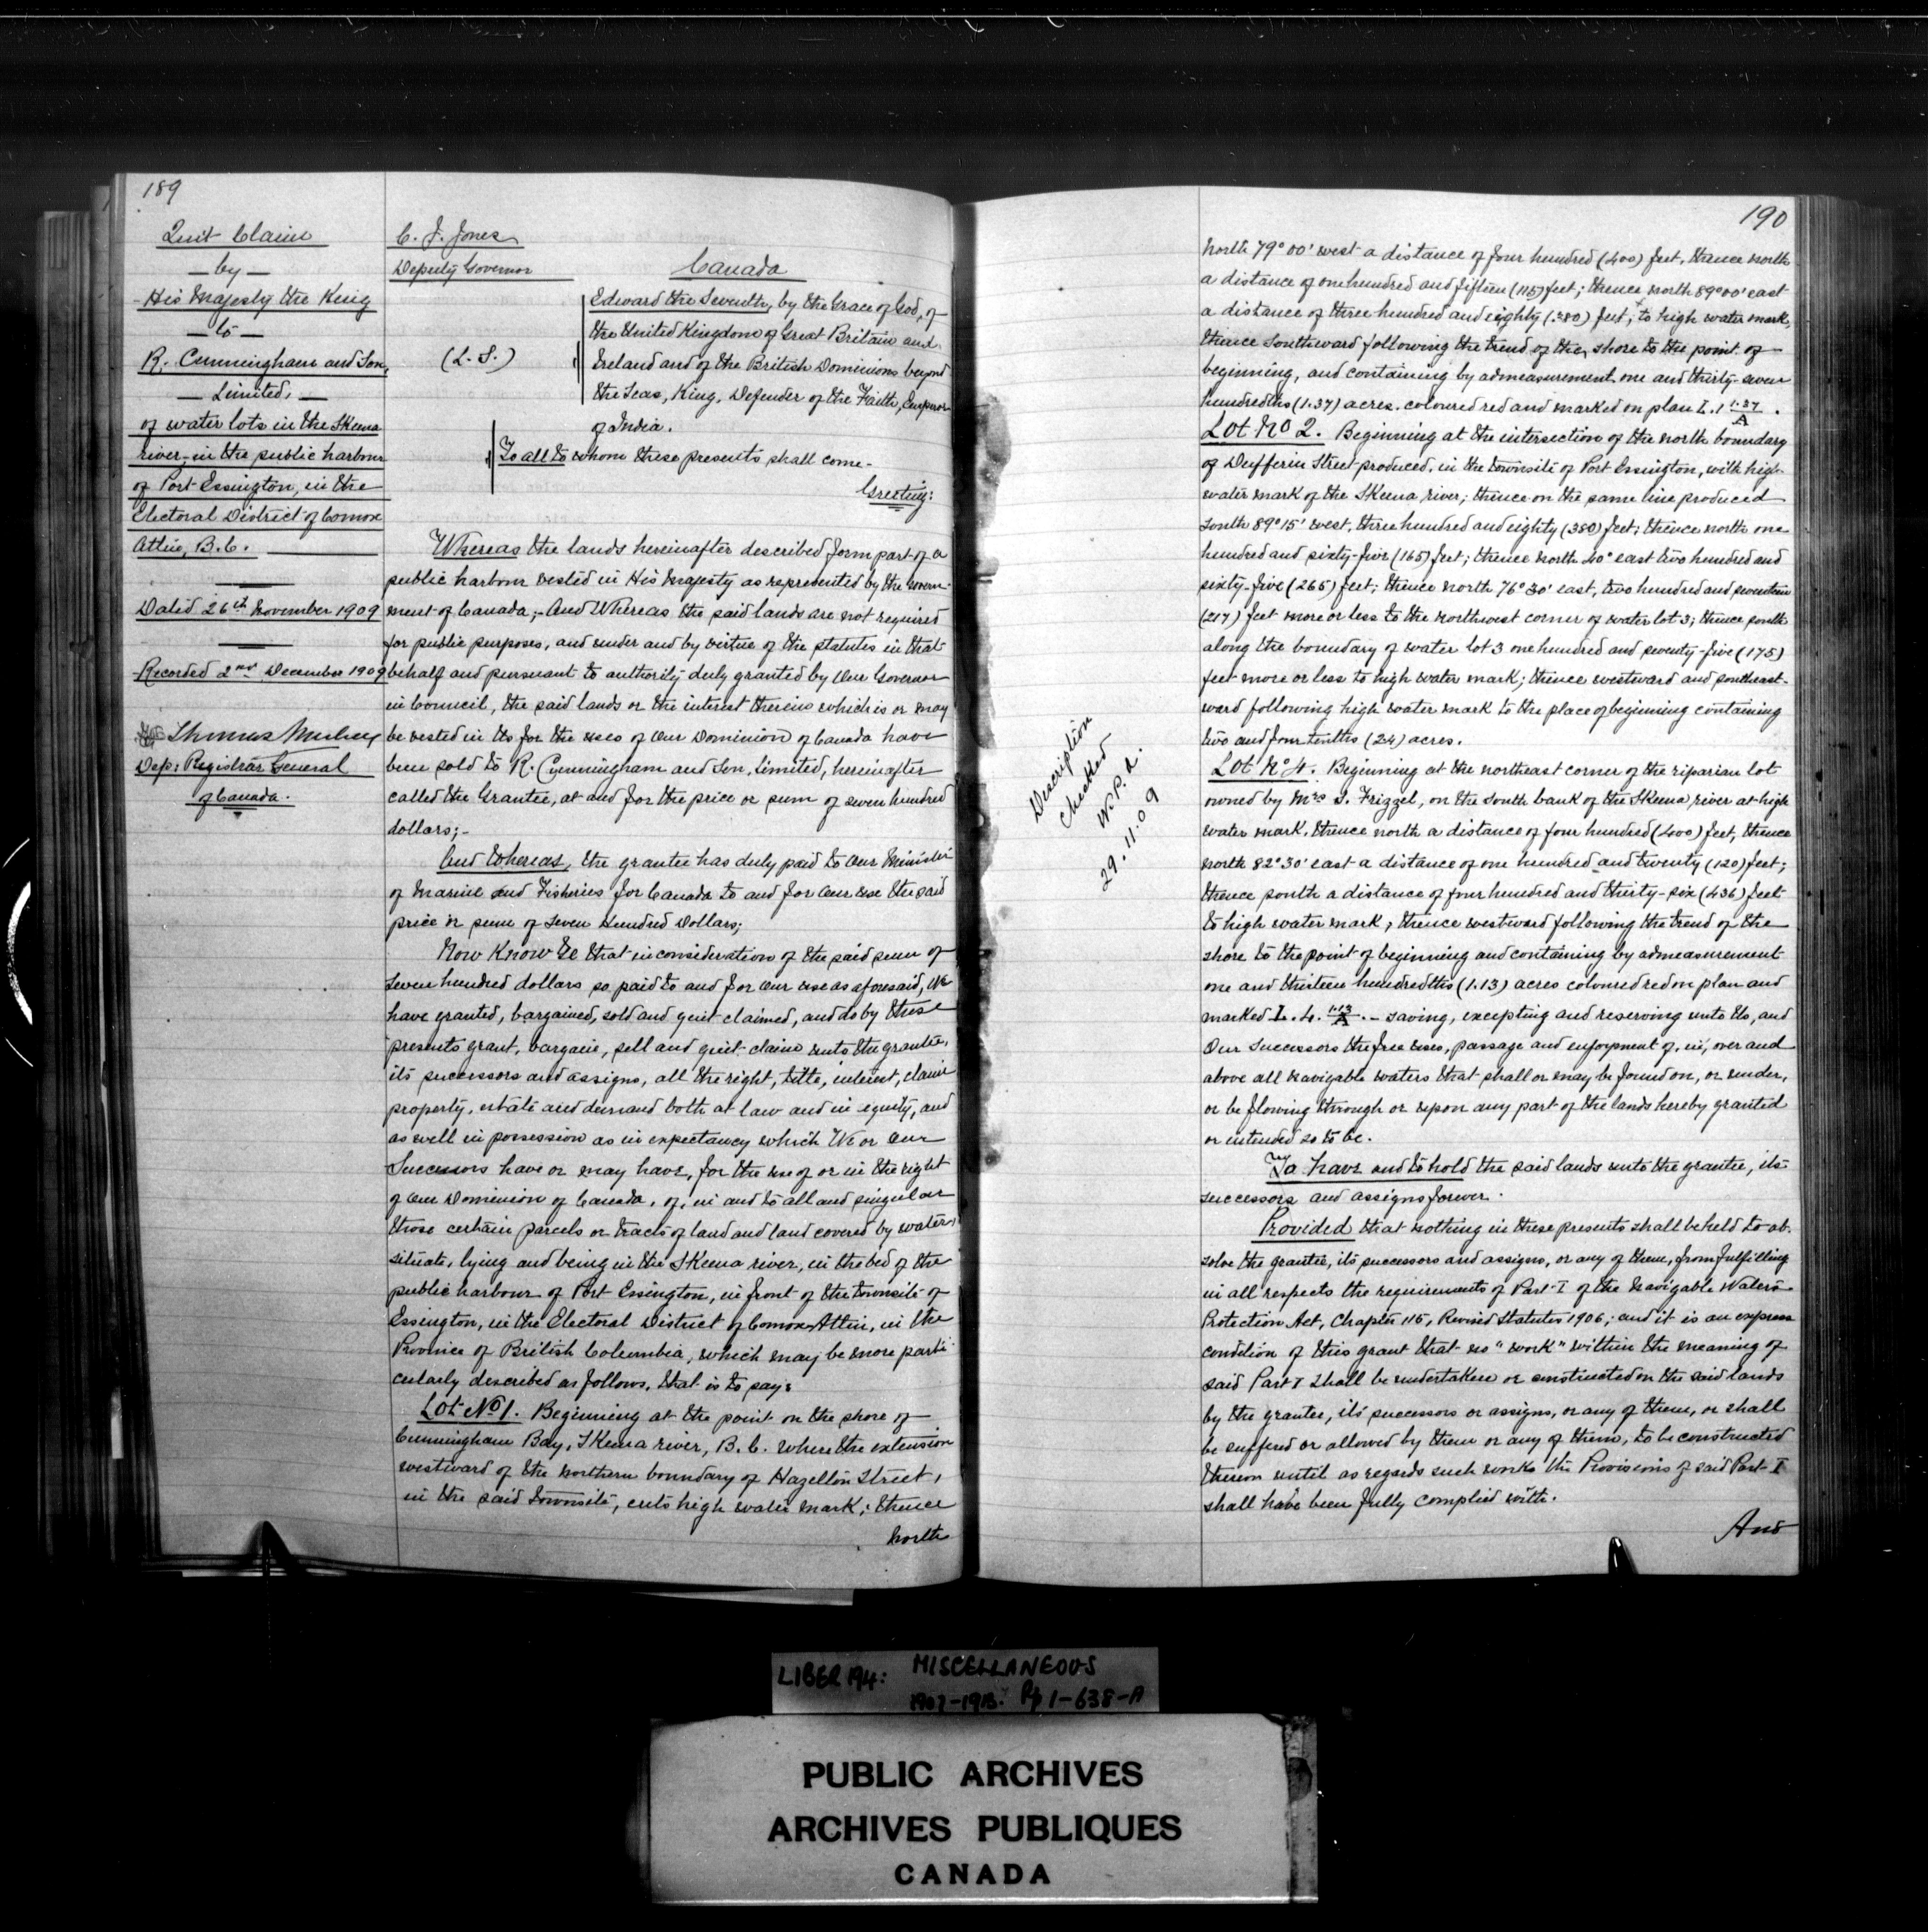 189
Quit Claim
— by —
His Majesty the King
— to —
R. Cunningham and Son,
— Limited, —
of water lots in the Skeena
river, in the public harbour
of Port Essington, in the
Electoral District of Comox
Atlin, B.C.
Dated 26th November 1909
Recorded 2nd December 1909
Thomas Mulvey
Dep: Registrar General
of Canada.
C. J. Jones
Deputy Governor
Canada
(L. S.)
Edward the Seventh, by the Grace of God, of
the United Kingdom of Great Britain and
Ireland and of the British Dominions beyond
the Seas, King, Defender of the Faith, Emperor
of India.
To all to whom these presents shall come-
Greeting:
Whereas the lands hereinafter described form part of a
public harbour vested in His Majesty as represented by the Govern-
ment of Canada;- And Whereas the said lands are not required
for public purposes, and under and by virtue of the statutes in that
behalf and pursuant to authority duly granted by Our Governor
in Council, the said lands or the interest therein which is or may
be vested in Us for the uses of Our Dominion of Canada have
been sold to R. Cunningham and Son, Limited, hereinafter
called the Grantee, at and for the price or sum of seven hundred
dollars;-
And Whereas, the grantee has duly paid to Our Minister
of Marine and Fisheries for Canada to and for Our use the said
price or sum of Seven Hundred Dollars;
Now Know Ye that in consideration of the said sum of
seven hundred dollars so paid to and for Our use as aforesaid, We
have granted, bargained, sold and quit claimed, and do by these
presents grant, bargain, sell and quit-claim unto the grantee,
its successors and assigns, all the right, title, interest, claim
property, estate and demand both at law and in equity, and
as well in possession as in expectancy which We or Our
Successors have or may have, for the use of or in the right
of Our Dominion of Canada, of, in and to all and singular
those certain parcels or tracts of land and land covered by water,
situate, lying and being in the Skeena river, in the bed of the
public harbour of Port Essington, in front of the townsite of
Essington, in the Electoral District of Comox-Atlin, in the
Province of British Columbia, which may be more parti-
cularly described as follows, that is to say:
Lot No 1. Beginning at the point on the shore of
Cunningham Bay, Skeena river, B.C. where the extension
westward of the northern boundary of Hazelton Street,
in the said townsite, cuts high water mark; thence
north
Description
checked
29.11.09
190
North 79° 00' west a distance of four hundred (400) feet, thence north
a distance of one hundred and fifteen (115) feet; thence north 89° 00' east
a distance of three hundred and eighty (380) feet, to high water mark,
thence southward following the trend of the shore to the point of
beginning, and containing by admeasurement one and thirty-seven
hundredths (1.37) acres. coloured red and marked on plan L. 1 1.37/A.
Lot No 2. Beginning at the intersection of the north boundary
of Dufferin Street produced, in the townsite of Port Essington, with high
water mark of the Skeena river; thence on the same line produced
South 89° 15' west, three hundred and eighty (380) feet; thence north one
hundred and sixty-five (165) feet; thence north 40° east two hundred and
sixty-five (265) feet; thence north 76° 30' east, two hundred and seventeen
(217) feet more or less to the northwest corner of water lot 3; thence south
along the boundary of water lot 3 one hundred and seventy-five (175)
feet more or less to high water mark; thence westward and southeast-
ward following high water mark to the place of beginning containing
two and four tenths (2.4) acres.
Lot No 4. Beginning at the northeast corner of the riparian lot
owned by Mrs S. Frizzel, on the south bank of the Skeena river at high
water mark, thence north a distance of four hundred (400) feet, thence
north 82° 30' east a distance of one hundred and twenty (120) feet;
thence south a distance of four hundred and thirty-six (436) feet
to high water mark; thence westward following the trend of the
shore to the point of beginning and containing by admeasurement
one and thirteen hundredths (1.13) acres coloured red on plan and
marked L. 4. 1.13/A. – saving, excepting and reserving unto Us, and
Our Successors the free uses, passage and enjoyment of, in, over and
above all navigable waters that shall or may be found on, or under,
or be flowing through or upon any part of the lands hereby granted
or intended so to be.
To have and to hold the said lands unto the grantee, its
successors and assigns forever.
Provided that nothing in these presents shall be held to ab-
solve the grantee, its successors and assigns, or any of them, from fulfilling
in all respects the requirements of Part I of the Navigable Waters
Protection Act, Chapter 115, Revised Statutes 1906; and it is an express
condition of this grant that no "work" within the meaning of
said Part I shall be undertaken or constructed on the said lands
by the grantee, its successors or assigns, or any of them, or shall
be suffered or allowed by them or any of them, to be constructed
thereon until as regards such works the Provisions of said Part I
shall have been fully complied with.
And
LIBER 194: MISCELLANEOUS
1907-1913. Pp 1-638-A
PUBLIC ARCHIVES
ARCHIVES PUBLIQUES
CANADA